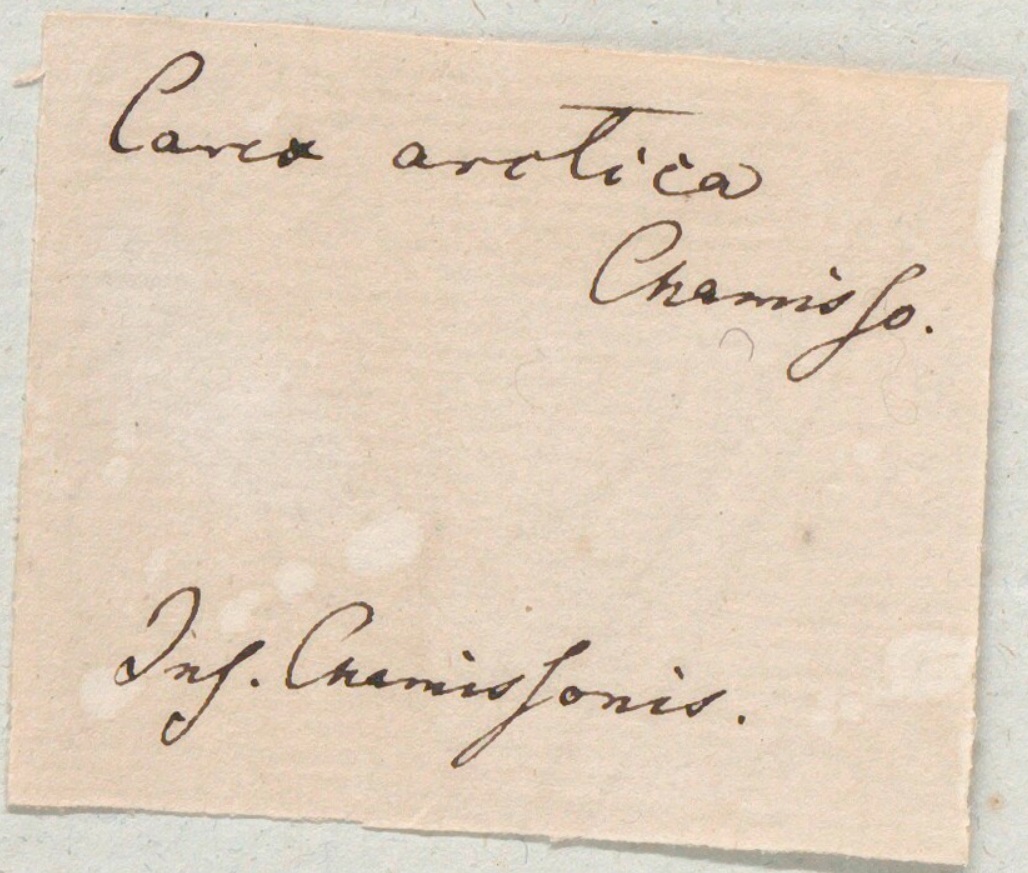 Carex arctica
Chamisso.
Ins. Chamissonis.